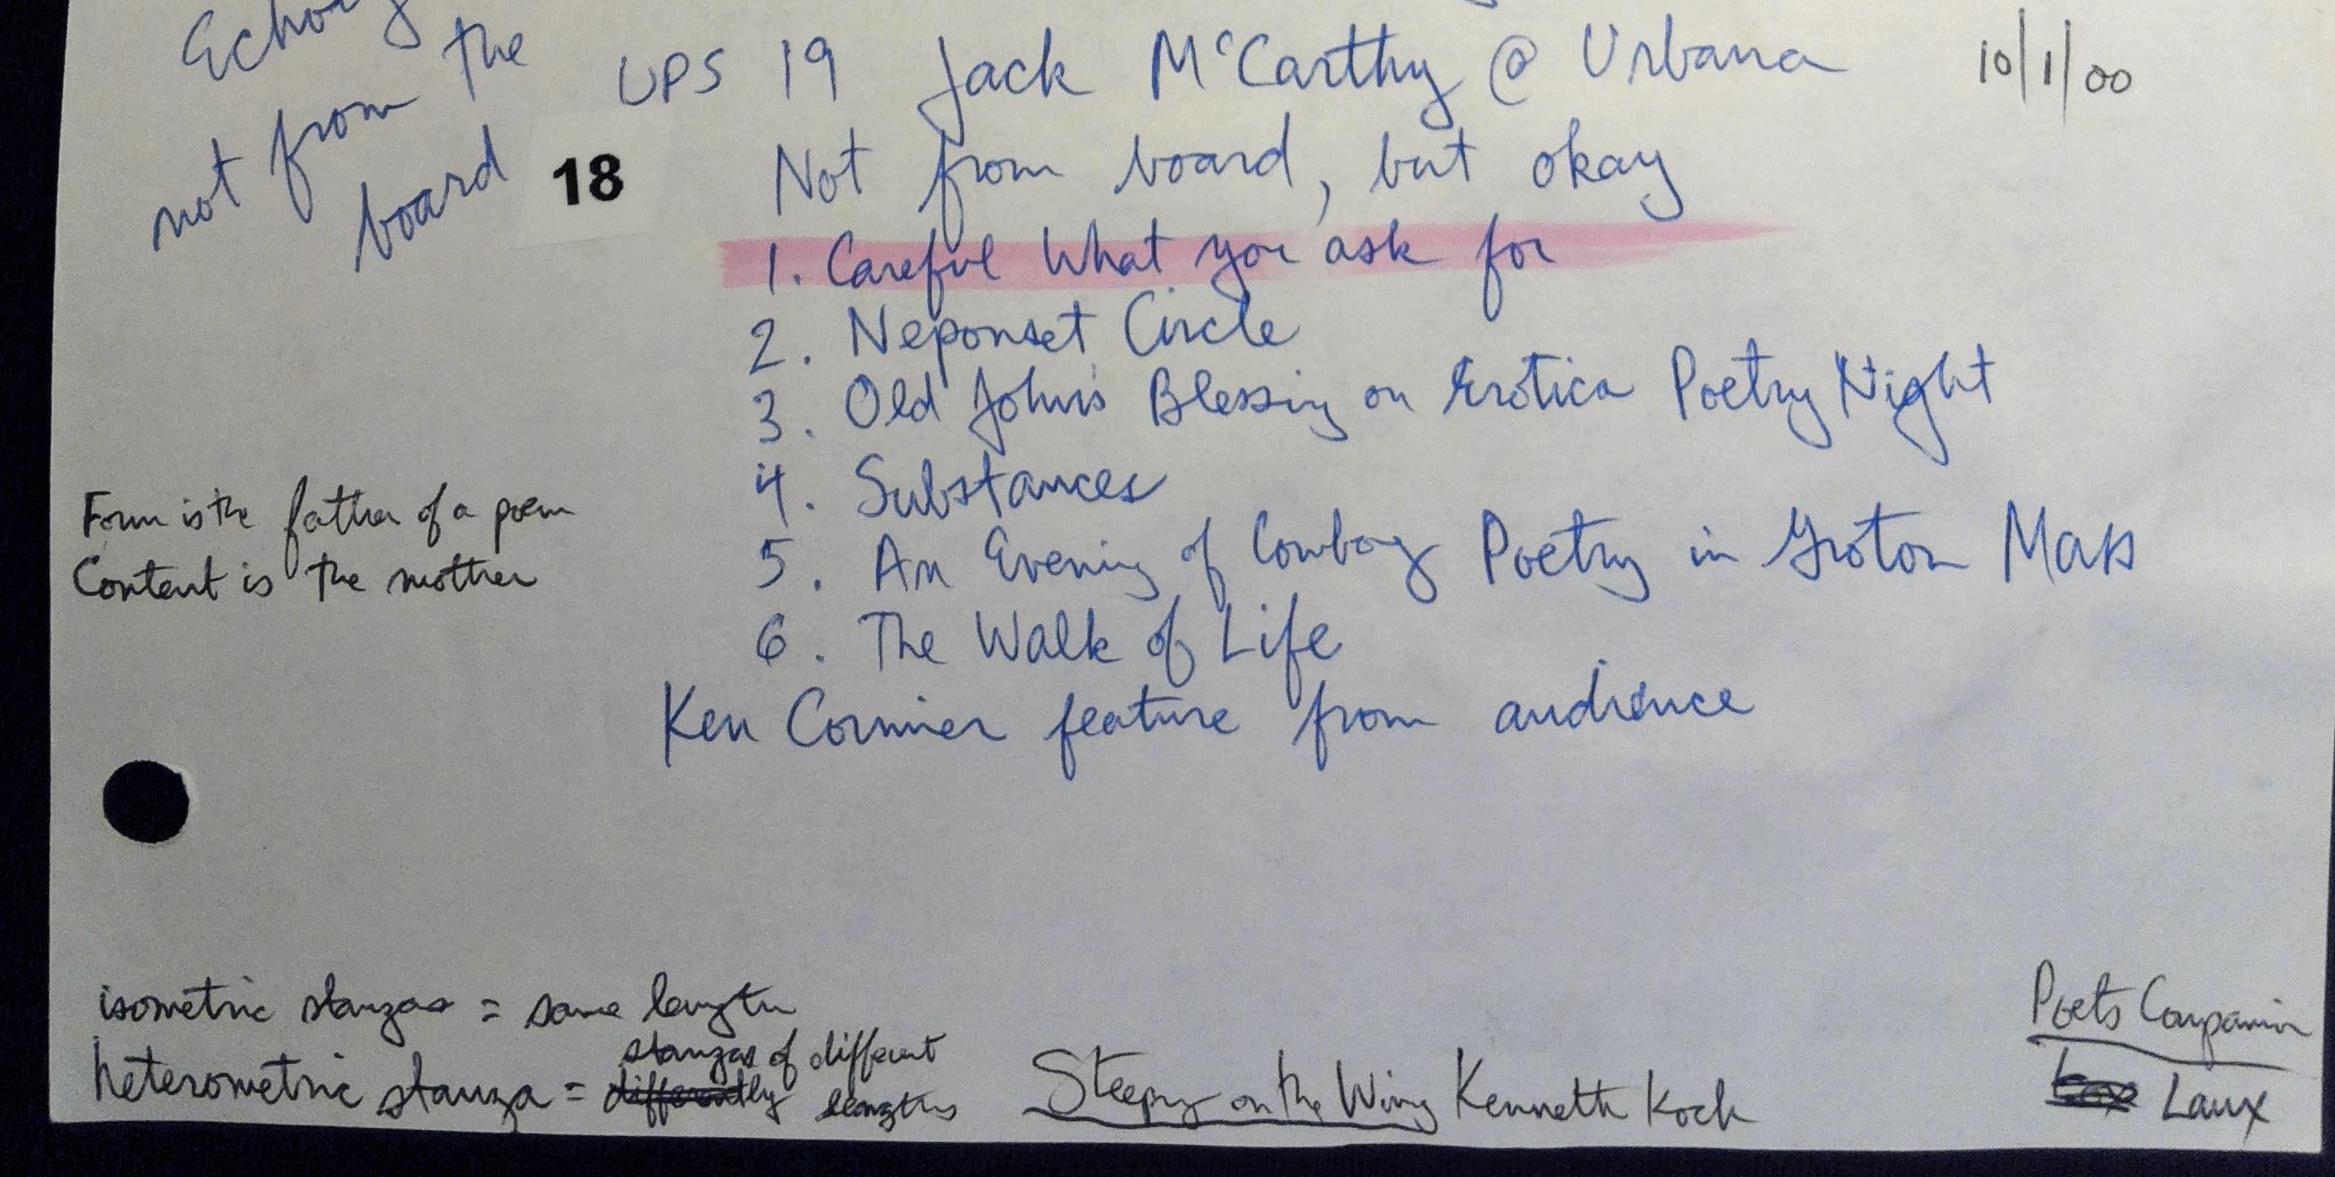 Echoey
not from the
board
18
UPS 19 Jack McCarthy @ Urbana 10/1/00
Not from board, but okay
1. Careful What you ask for
2. Neponset Circle
3. Old John's Blessing on Erotica Poetry Night
4. Substances
5. An Evening of Cowboy Poetry in Groton Mass
6. The Walk of Life
Ken Cormier feature from audience
Form is the father of a poem
Content is the mother
isometric stanzas = same length
heterometric stanza = differently stanzas of different
lengths
Sleeping on the Wing Kenneth Koch
Poets Companion
Laux